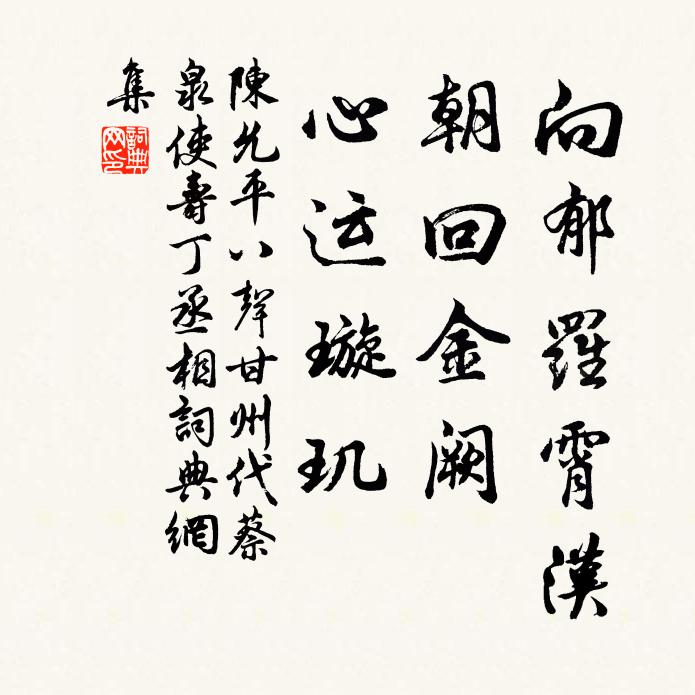 向郁羅霄漢
朝回金阙
心运璇玑
陳允平八聲甘州代蔡
泉使壽丁丞相詞典網
集
詞典网印